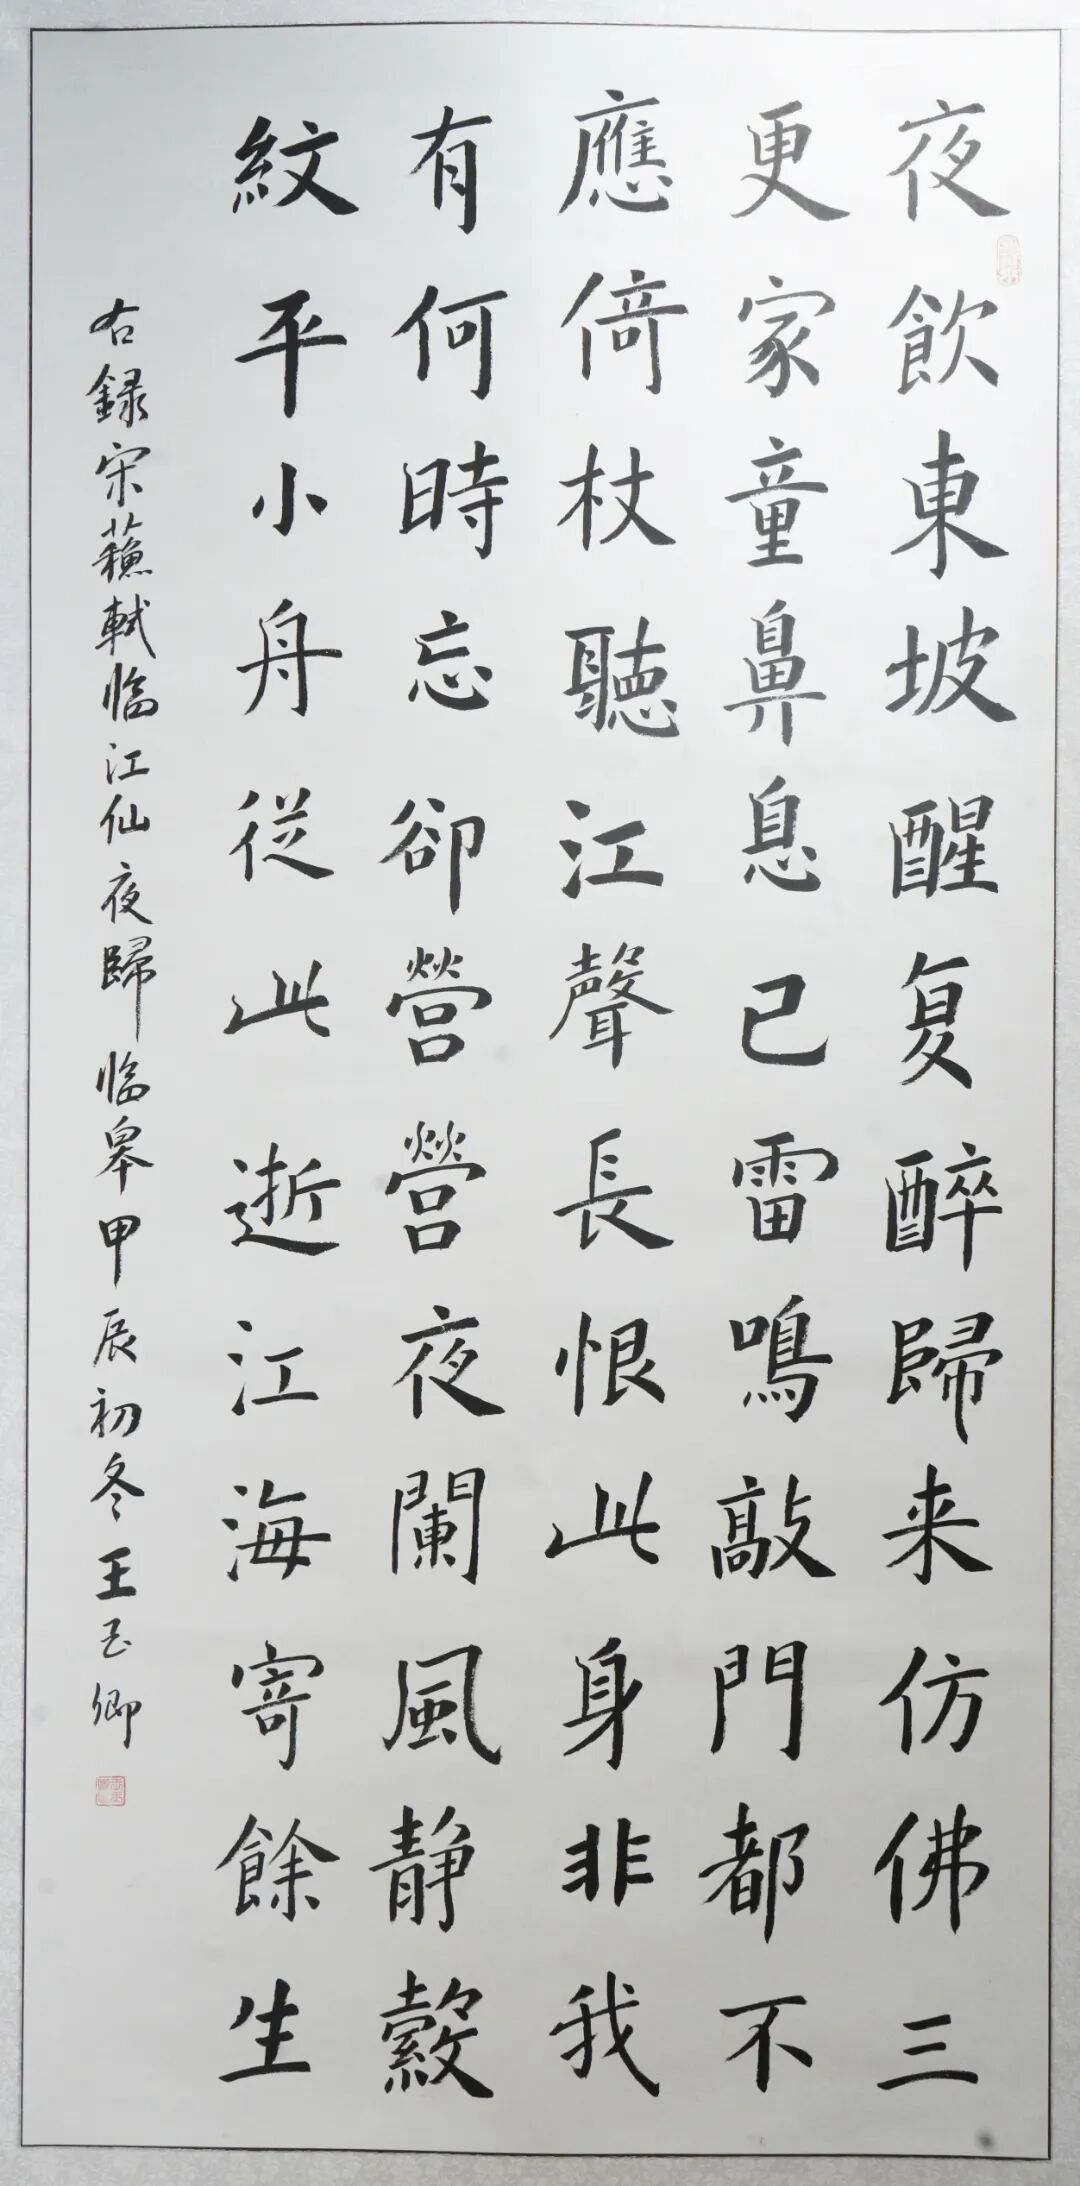 夜飲東坡醒复醉歸来仿佛三
更家童鼻息已雷鳴敲門都不
應倚杖聽江聲長恨此身非我
有何時忘卻營營夜闌風靜縠
紋平小舟從此逝江海寄餘生
右録宋蘓軾临江仙夜歸临皋甲辰初冬王玉卿